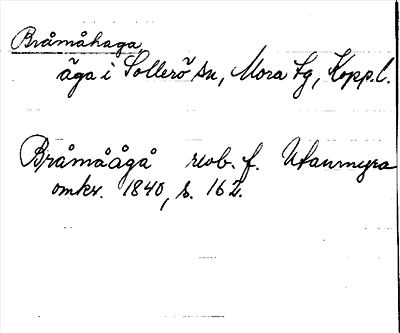 Bråmåhaga
äga i Sollerö sn, Mora tg, Kopp.l.
Bråmåågå rub. f. Utanmyra
omkr. 1840, s. 162.